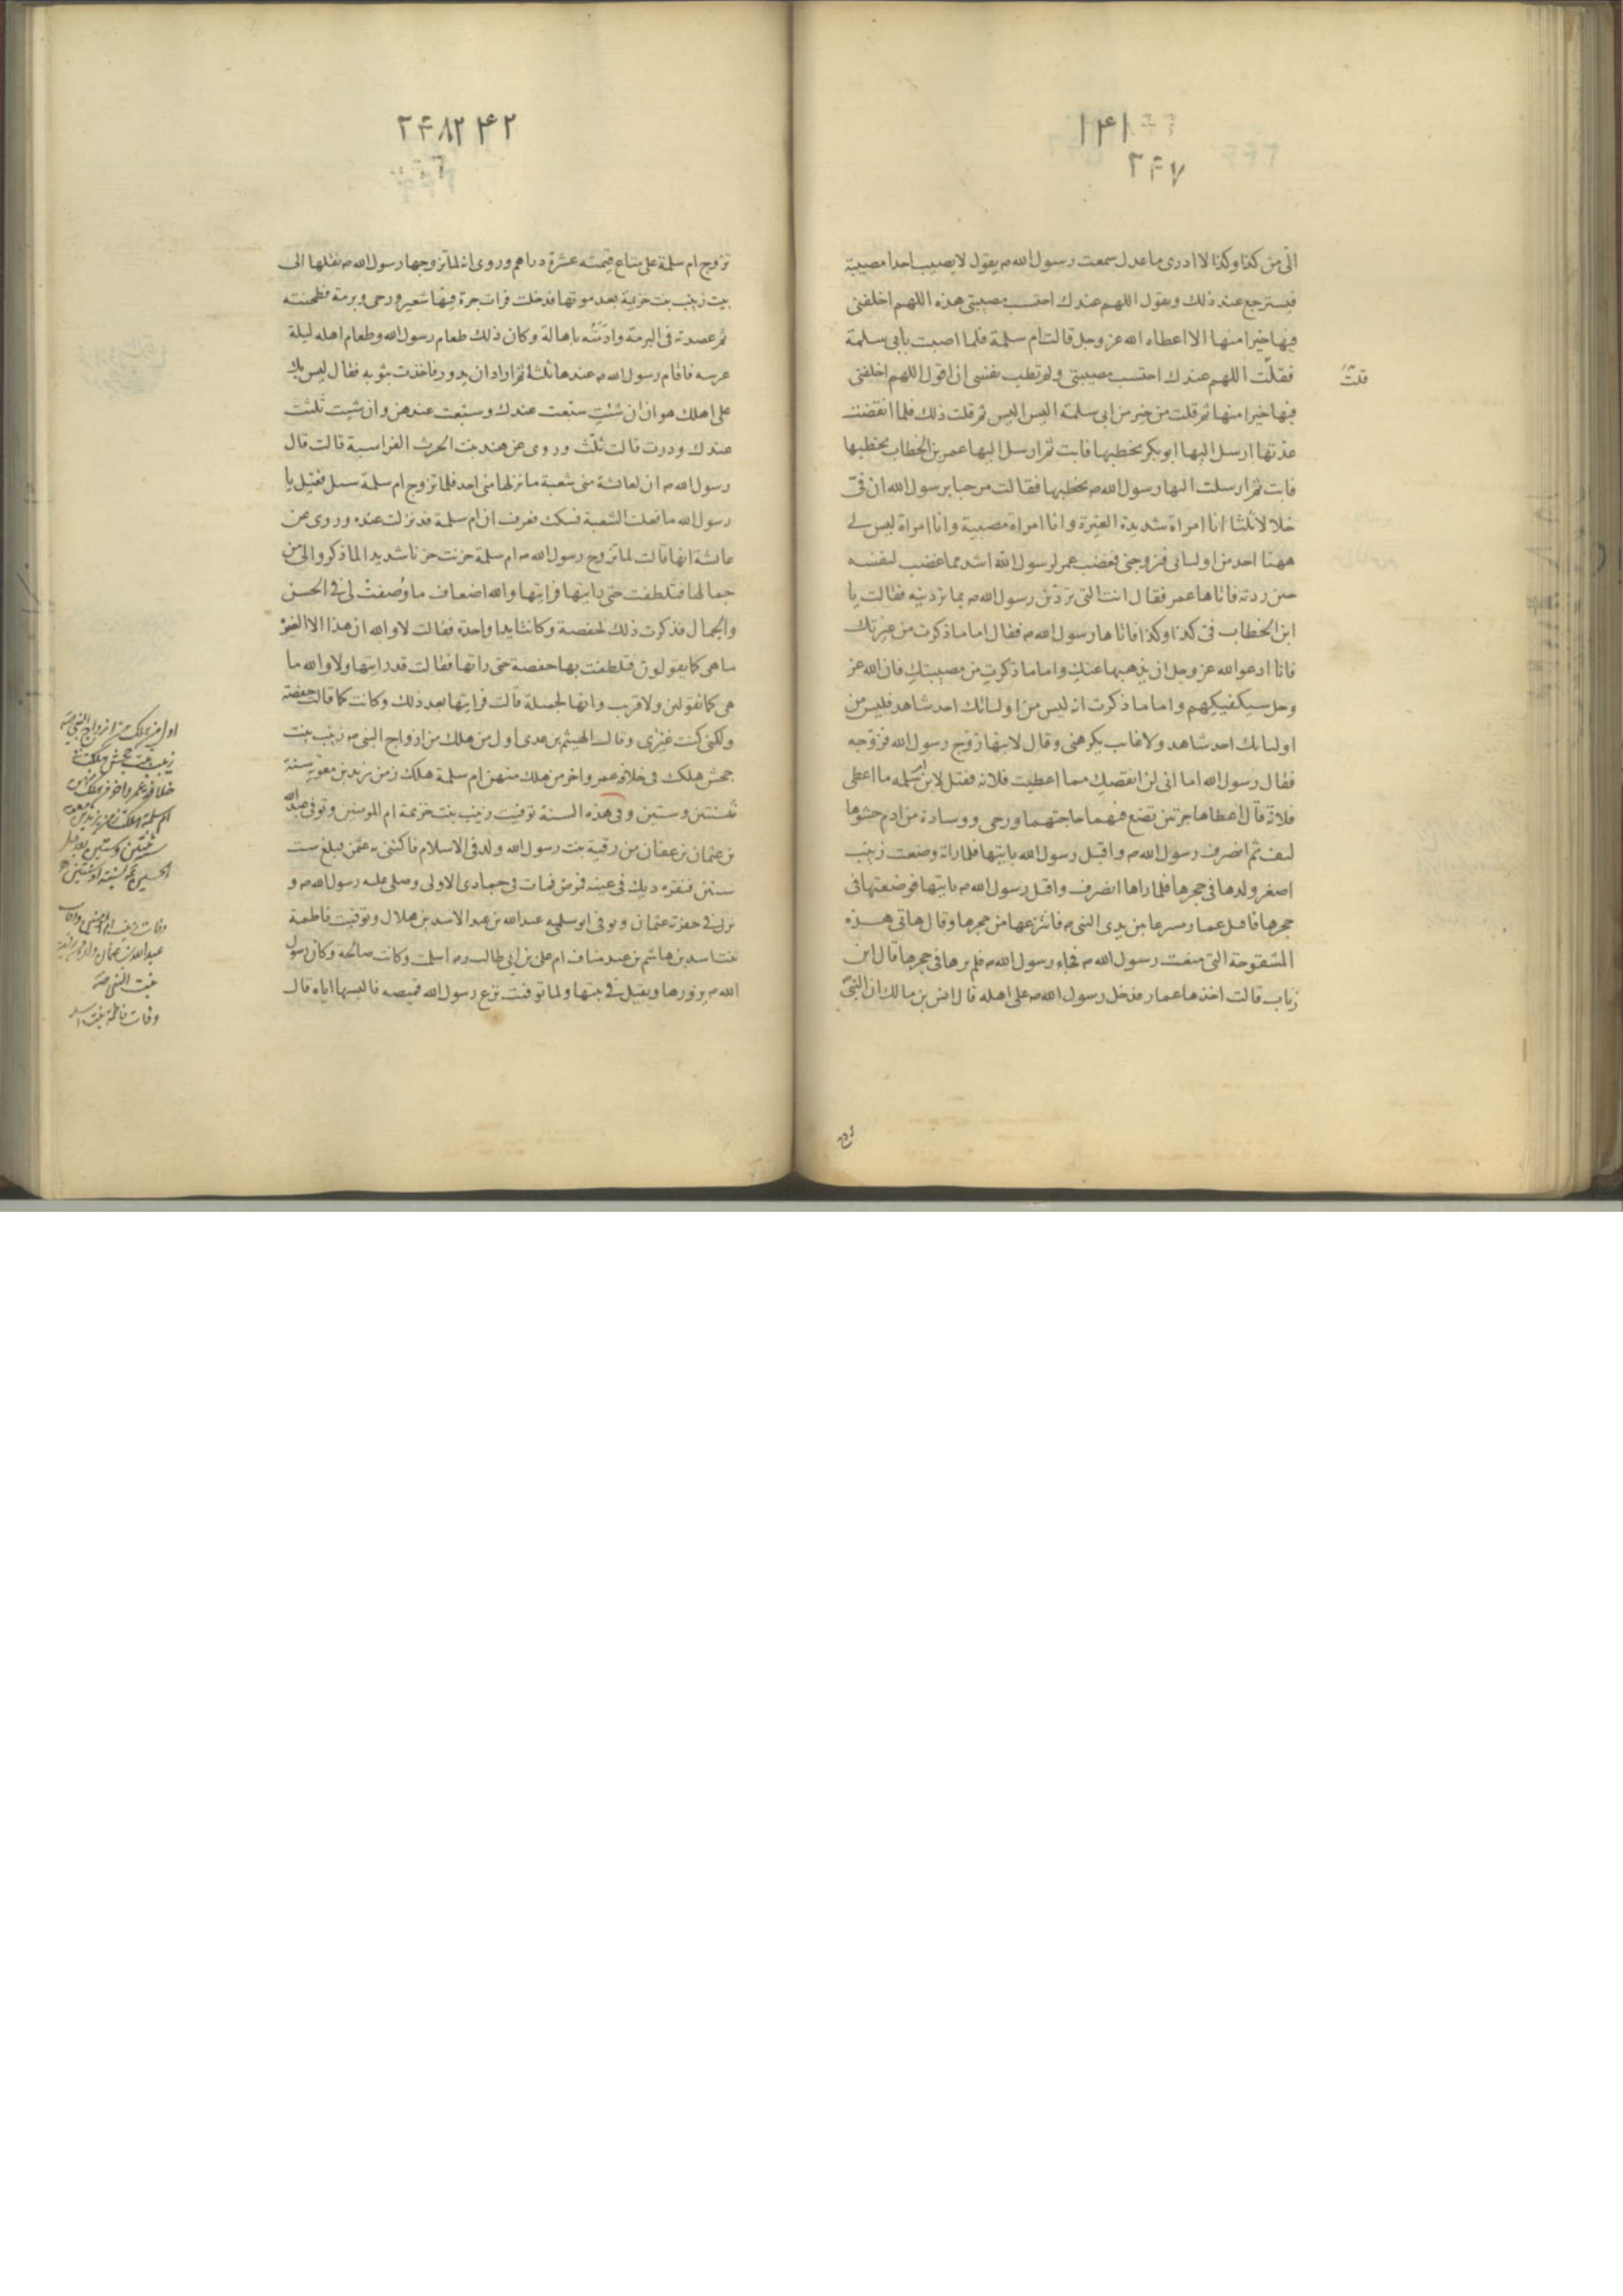 ١٤١
٢۴٧
الي من كذا وكذا لا ادرى ما عدل سمعت رسول الله ص يقول لا يصيب احدا مصيبة
فيسترجع عند ذلك ويقول اللهم عندك احتسب مصيبتى هذه اللهم اخلفنى
فيها خيرا منها الا اعطاه الله عز وجل قالت ام سلمة فلما اصبت بابى سلمة
فقلت اللهم عندك احتسب مصيبتى ولم تطب نفسى ان اقول اللهم اخلفنى
قلت
فيها خيرا منها ثم قلت من خير من ابى سلمة اليس اليس ثم قلت ذلك فلما انقضت
عدتها ارسل اليها ابو بكر يخطبها فابت ثم ارسل اليها عمر بن الخطاب يخطبها
فابت ثم ارسلت اليها رسول الله ص يخطبها فقالت مرحبا برسول الله ان فىّ
خلالا ثلثا انا امراة شديدة الغيرة وانا امراة مصبية وانا امراة ليس لى
ههنا احد من اوليائى فزوجنى فغضب عمر لرسول الله اشد مما غضب لنفسه
حين ردته فاتاها عمر فقال انت التى تردين رسول الله ص بما تردينه فقالت يا
ابن الخطاب فى كذا وكذا فاتاها رسول الله ص فقال اما ما ذكرت من غيرتك
فانا ادعو الله عز وجل ان يذهبها عنك واما ما ذكرت من مصيبتك فان الله عز
وجل سيكفيكهم واما ما ذكرت انه ليس من اوليائك احد شاهد فليس من
اوليائك احد شاهد ولا غايب يكرهنى وقال لابنها زوج رسول الله فزوجه
فقال رسول الله اما انى لن انقصك مما اعطيت فلانة فقيل لابن ام سلمه ما اعطى
فلانة قال اعطاها جرتين تضع فيهما حاجتهما ورحى ووسادة من ادم حشوها
ليف ثم انصرف رسول الله ص واقبل رسول الله ياتيها فلما راته وضعت زينب
اصغر ولدها فى حجرها فلما راها انصرف واقبل رسول الله ص ياتيها فوضعتها فى
حجرها فاقبل عمار مسرعا بين يدى النبى ص فانتزعها من حجرها وقال هاتى هذه
المشقوحة التى منعت رسول الله ص فجاء رسول الله ص فلم يرها فى حجرها قال اين
زناب قالت اخذها عمار فدخل رسول الله ص على اهله قال انس بن مالك ان النبى
تزوج
٢۴٨
٤٢
تزوج ام سلمة على متاع قيمته عشرة دراهم وروى انه لما تزوجها رسول الله ص نقلها الى
بيت زينب بنت خزيمة بعد موتها فدخلت فرات جرة فيها شعير ورحى وبرمة فطحنته
ثم عصدته فى البرمة وادمته باهالة وكان ذلك طعام رسول الله وطعام اهله ليلة
عرسه فاقام رسول الله ص عندها ثلثة ثم اراد ان يدور فاخذت بثوبه فقال ليس بك
على اهلك هوان ان شئت سبعت عندك وسبعت عندهن وان شيت ثلثت
عندك ودرت قالت ثلث وروى عن هند بنت الحرث الفراسية قالت قال
رسول الله ص ان لعائشة منى شعبة ما نزلها منى احد فلما تزوج ام سلمة سئل فقيل يا
رسول الله ما فعلت الشعبة فسكت فعرف ان ام سلمة قد نزلت عنده وروى عن
عائشة انها قالت لما تزوج رسول الله ص ام سلمة حزنت حزنا شديدا لما ذكروا لى من
جمالها فتلطفت حتى رايتها فرايتها والله اضعاف ما وُصفت لى فى الحسن
والجمال فذكرت ذلك لحفصة وكانتا يدا واحدة فقالت لا والله ان هذا الا الغيرة
ما هى كما يقولون فتلطفت بها حفصة حتى راتها فقالت قد رايتها ولا والله ما
هى كما تقولين ولا قريب وانها لجميلة قالت فرايتها بعد ذلك وكانت كما قالت حفصة
ولكنى كنت غيرى وقال الهيثم بن عدى اول من هلك من ازواج النبى ص زينب بنت
جحش هلك فى خلافة عمر واخر من هلك منهن ام سلمة هلك زمن يزيد بن معوية سنة
ثنتين وستين وفى هذه السنة توفيت زينب بنت خزيمة ام المومنين وتوفى عبد الله
بن عثمان بن عفان من رقية بنت رسول الله ولد فى الاسلام فاكتنى به عثمن فبلغ ست
سنين فنقره ديك فى عينه فمرض فمات فى جمادى الاولى وصلى عليه رسول الله ص و
نزل فى حفرته عثمان وتوفى ابو سلمه عبد الله بن عبد الاسد بن هلال وتوفيت فاطمة
بنت اسد بن هاشم بن عبد مناف ام على بن ابى طالب رض اسلمت وكانت صالحة وكان رسول
الله ص يزورها ويقيل فى بيتها ولما توفيت نزع رسول الله قميصه فالبسها اياه قال
اول من هلك من ازواج النبى ص
زينب بنت جحش هلكت فى
خلافة عمر واخر من هلك منهن
ام سلمة هلكت زمن يزيد بن معوية
سنة ثنتين وستين بعد قتل
الحسين
وفات زينب ام المومنين ووفات
عبد الله بن عثمان ولد من رقية
بنت النبى ص
وفات فاطمة بنت اسد